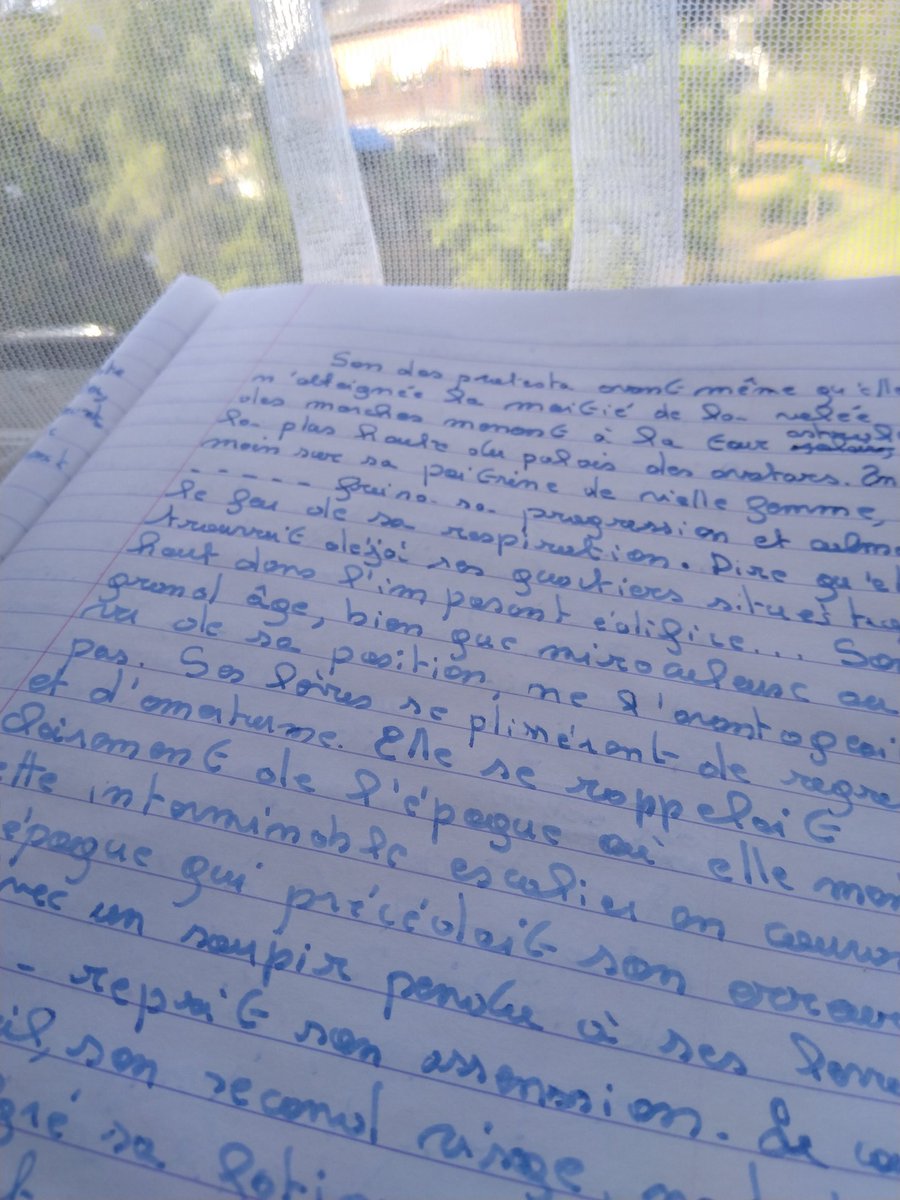 Son dos protesta avant même qu'elle
n'atteignée la moitié de la volée
des marches menant à la tour
la plus haute du palais des avatars. Un
main sur sa poitrine de vielle femme,
---- freina sa progression et calma
le feu de sa respiration. Dire qu'el
trouvait déjà ses quartiers situés trop
haut dans l'imposant édifice... Son
grand âge, bien que miraculeux au
vu de sa position, ne l'avantageai
pas. Ses lèvres se plimèrent de regre
et d'amertume. Elle se rappelait
clairement de l'époque où elle mon
ette interminable escalier en couran
époque qui précédait son
vec un soupir pendu à ses lèvre
- reprit son assension. Le
il, son second visage,
gré sa